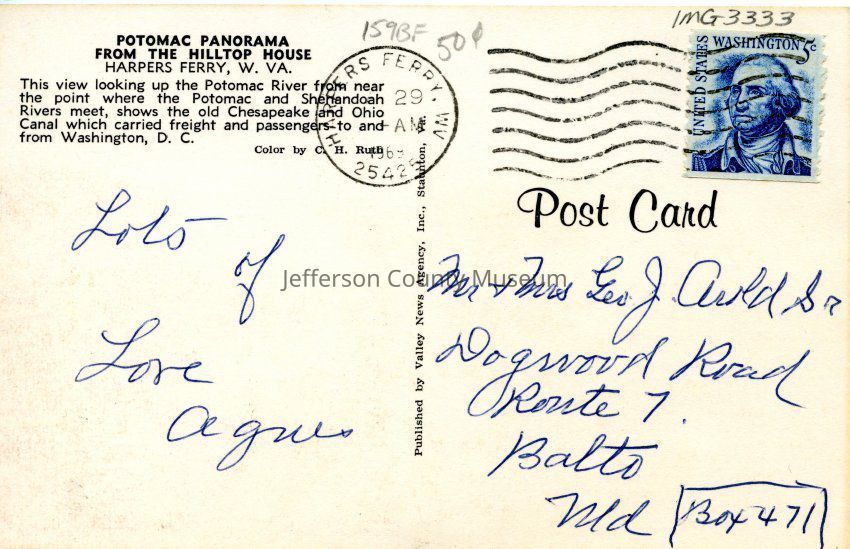 159BF
50¢
IMG3333
POTOMAC PANORAMA
FROM THE HILLTOP HOUSE
HARPERS FERRY, W. VA.
This view looking up the Potomac River from near
the point where the Potomac and Shenandoah
Rivers meet, shows the old Chesapeake and Ohio
Canal which carried freight and passengers to and
from Washington, D. C.
Color by C. H. Ruth
HARPERS FERRY, WV
29
AM
25425
UNITED STATES
WASHINGTON 5c
Post Card
Published by Valley News Agency, Inc., Staunton, Va.
Lots
of
Love
Agnes
Jefferson County Museum
Mr & Mrs Geo J. Sr
Dogwood Road
Route 7.
Balto
Md
Box 471